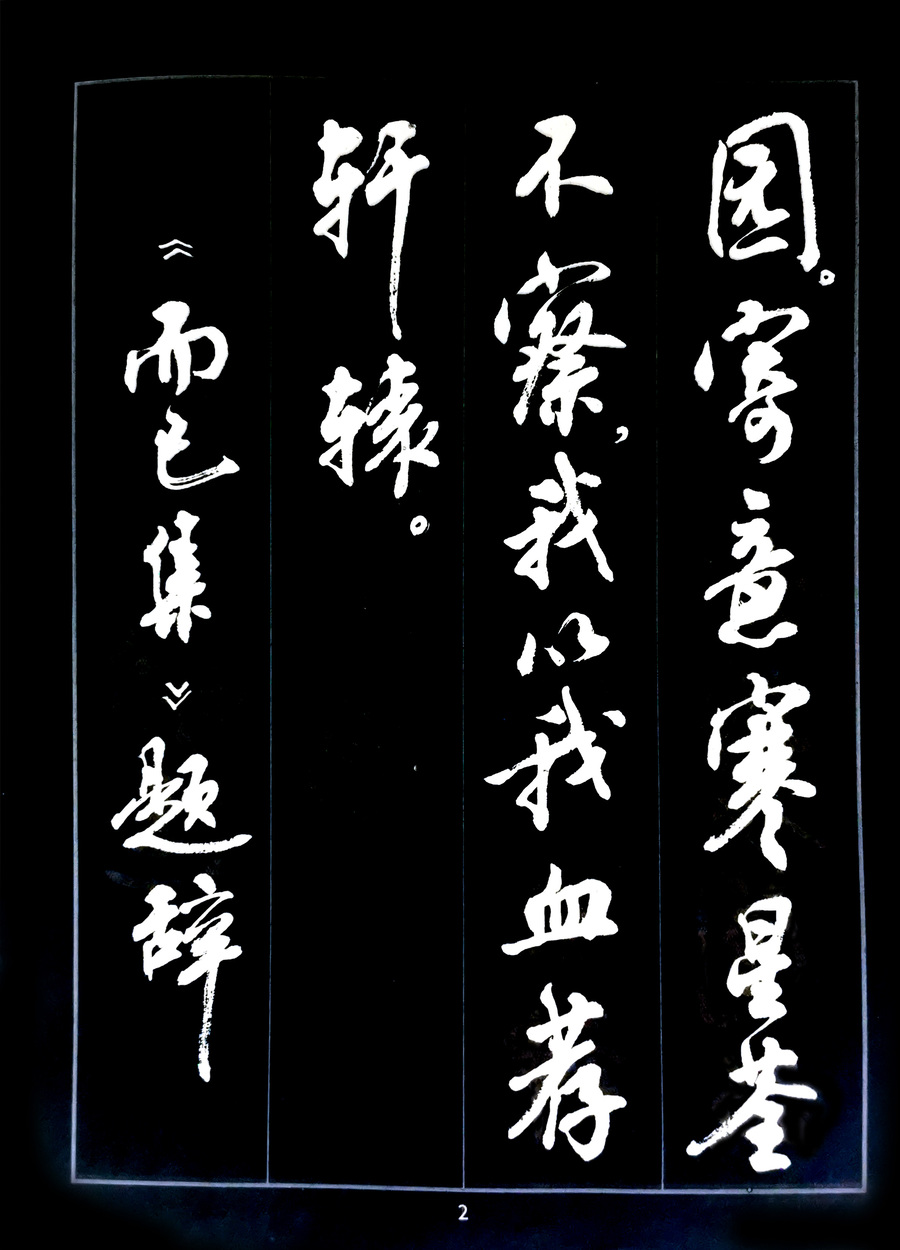 园。寄意寒星荃
不察，我以我血荐
轩辕。
《而已集》题辞
2